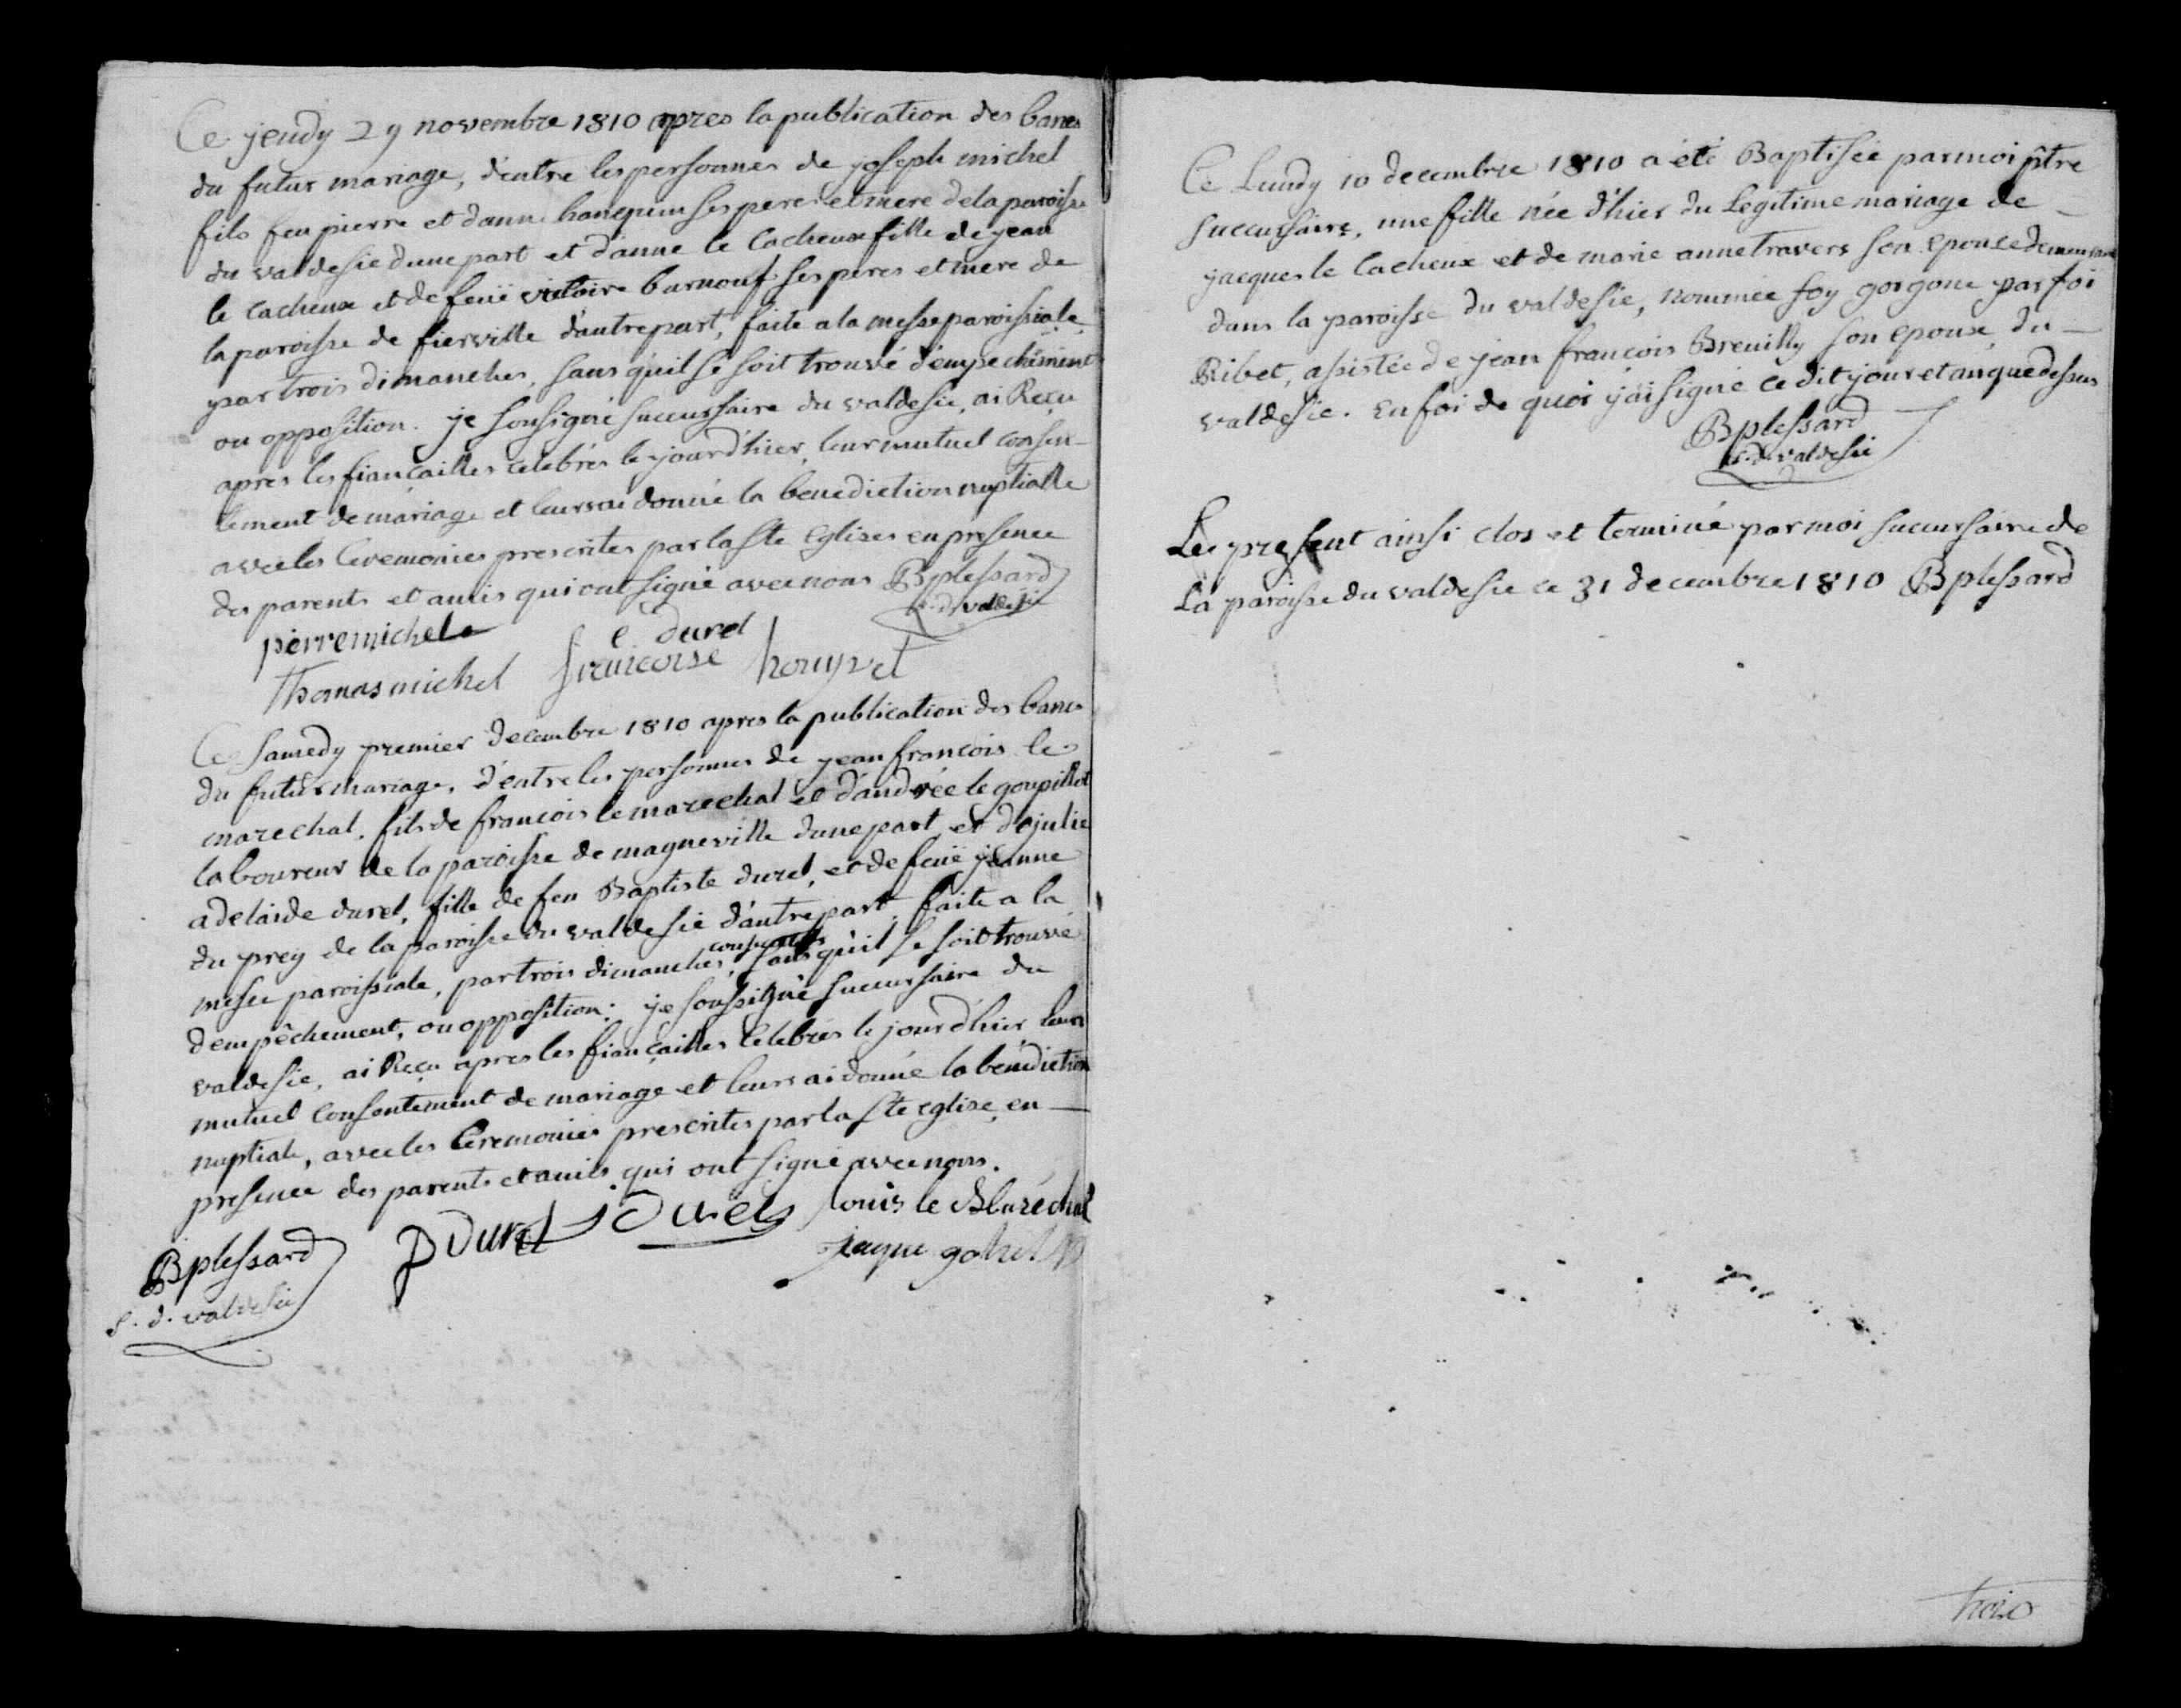 Ce jeudy 29 novembre 1810 apres la publication des bancs
du futur mariage, d'entre les personnes de joseph michel
fils feu pierre et danne hanequin ses peres et mere de la paroisse
du valdesie dune part et d'anne le Cacheux fille de jean
le cacheux et de feuë victoire barnouf ses peres et mere de
la paroisse de fierville d'autre part, faite a la messe paroissiale
par trois dimanches, sans qu'il se soit trouvé d'empechement
ou opposition. je soussigné succursaire du valdesie, ai Reçu
apres les fiançailles celebrés le jour d'hier, leur mutuel consen-
tement de mariage et leurs ai donné la benediction nuptialle
avec les Ceremonies prescrites par la Ste Eglises en presence
des parents et amis qui ont signé avec nous BplesSard
s. d. valdesie
pierre michel e durel
Thomas michel francoise houyvet
Ce Samedy premier decembre 1810 apres la publication des bancs
du futur mariage, d'entre les personnes de jean francois le
marechal, fils de francois le marechal et d'andrée le goupillot
laboureur de la paroisse de magneville dune part et de julie
adelaide durel, fille de feu Baptiste durel, et de feuë jeanne
du prey de la paroisse du valdesie d'autre part, faite a la
messe paroissiale, par trois dimanches consecutifs, sans qu'il se soit trouvé
dempêchement, ou opposition; je soussigné succursaire du
valdesie, ai Reçu apres les fiançailles Celebrés le jour d'hier leurs
mutuel Consentement de mariage et leurs ai donné la bénédiction
nuptiale, avec les Ceremonies prescrites par la Ste eglise, en
presence des parents et amis qui ont signé avec nous.
BplesSard P Durel j Durel louis le Maréchal
s. d. valdesie jaque
Ce Lundy 10 decembre 1810 a été Baptisée par moi ptre
succursaire, une fille née d'hier du Legitime mariage de
jacques le Cacheux et de marie anne travers son epouse demeurant
dans la paroisse du valdesie, nommée foy gorgone par foi
Ribet, assistée de jean françois Breuilly son epoux, du
valdesie. en foi de quoi j'ai signé ce dit jour et an que dessus
BplesSard
s. d. valdesie
Le present ainsi clos et terminé par moi succursaire de
La paroisse du valdesie ce 31 decembre 1810 BplesSard
trois